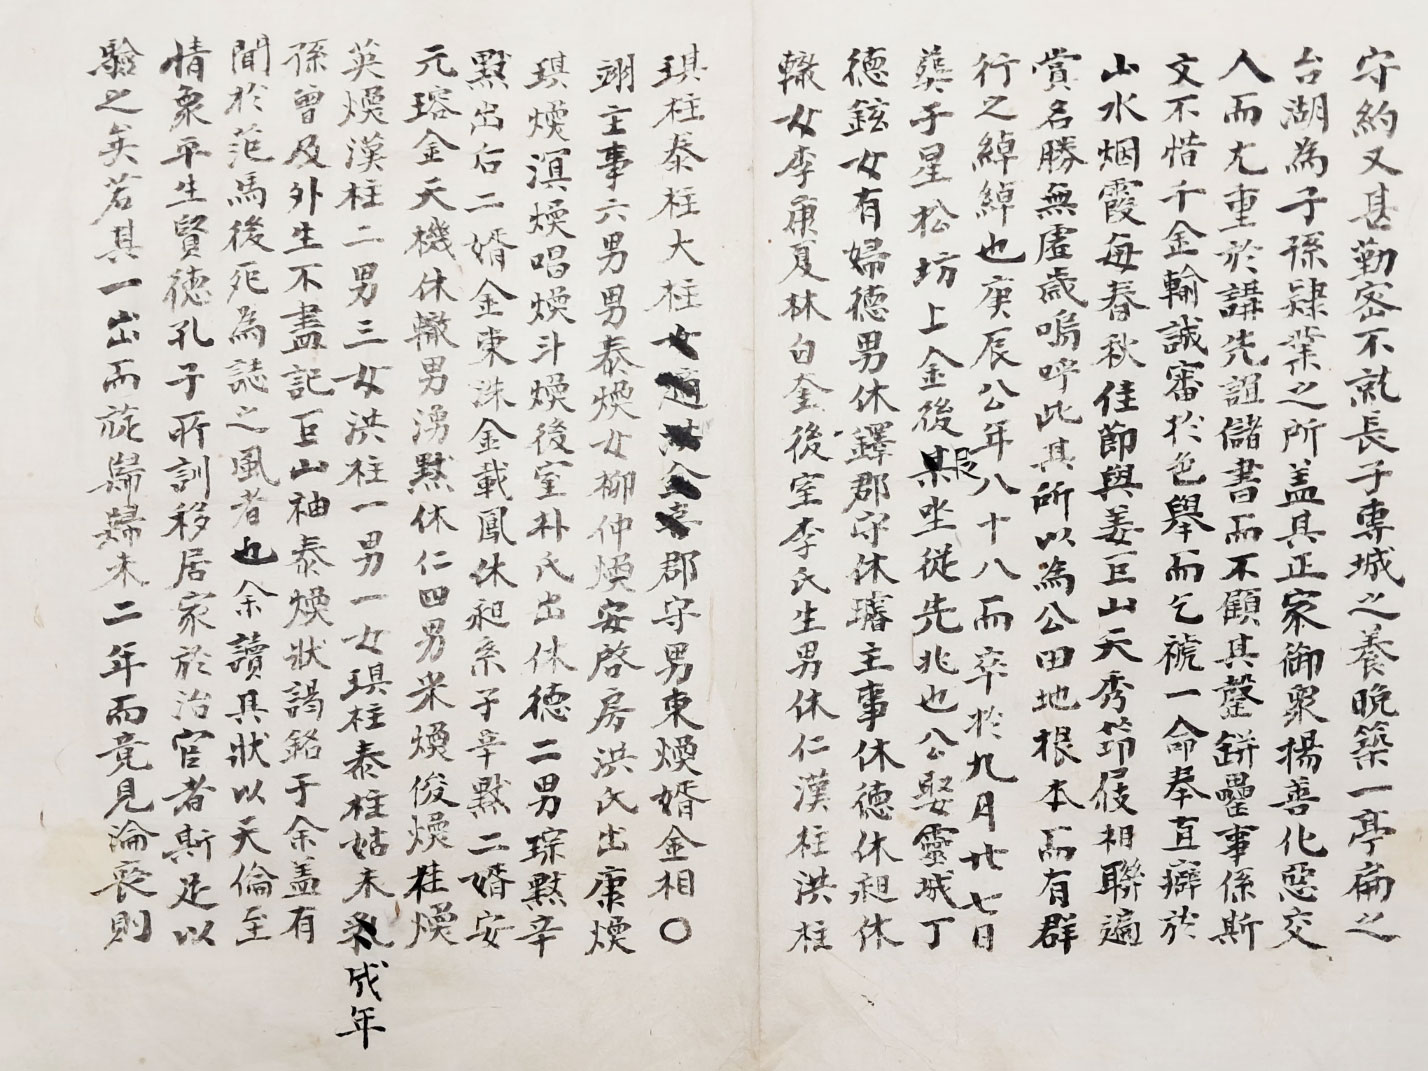 守約又甚勤密不就長子專城之養晚築一亭扁之
台湖為子孫肄業之所盖其正家御衆揚善化惡交
人而尤重於講先誼儲書而不顧其罄缾罍事係斯
文不惜千金輸誠審於色舉而乞褫一命奉直癖於
山水烟霞每春秋佳節與姜巨山天秀筇屐相聯遍
賞名勝無虛歲嗚呼此其所以為公田地根本而有群
行之綽綽也庚辰公年八十八而卒於九月廿七日
葬子星松坊上金後艮坐從先兆也公娶靈城丁
德鉉女有婦德男休鐸郡守休璿主事休德休昶休
轍女李康夏林白奎後室李氏生男休仁漢柱洪柱
琪柱泰柱大柱郡守男東煥婿金相〇
翊主事六男男泰煥女柳仲煥安啓房洪氏出康煥
琪煥淏煥唱煥斗煥後室朴氏出休德二男琮黙辛
黙出后二婿金東洙金載鳳休昶系子辛黙二婿安
元瑢金天機休轍男湧黙休仁四男光煥俊煥桂煥
英煥漢柱二男三女洪柱一男一女琪柱泰柱姑未成年
孫曾及外生不盡記巨山袖泰煥狀謁銘于余盖有
聞於范馬後死為誌之風者也余讀其狀以天倫至
情象平生賢德孔子所訓移居家於治官者斯足以
驗之矣若其一出而旋歸歸未二年而竟見淪喪則